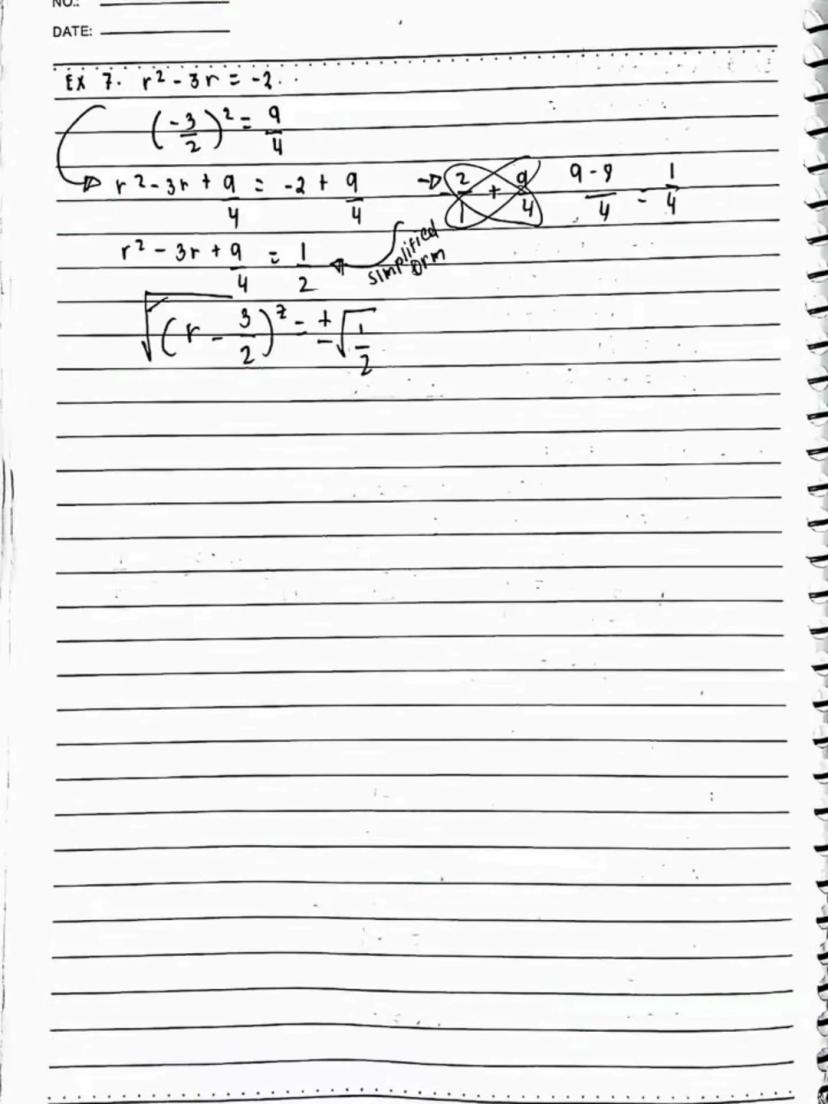 NO.:
DATE:
EX 7. r² - 3r = -2.
(-3/2)² = 9/4
r² - 3r + 9/4 = -2 + 9/4 → -2/1 + 9/4 9-8/4 = 1/4
r² - 3r + 9/4 = 1/2 simplified orm
√(r - 3/2)² = ±√1/2